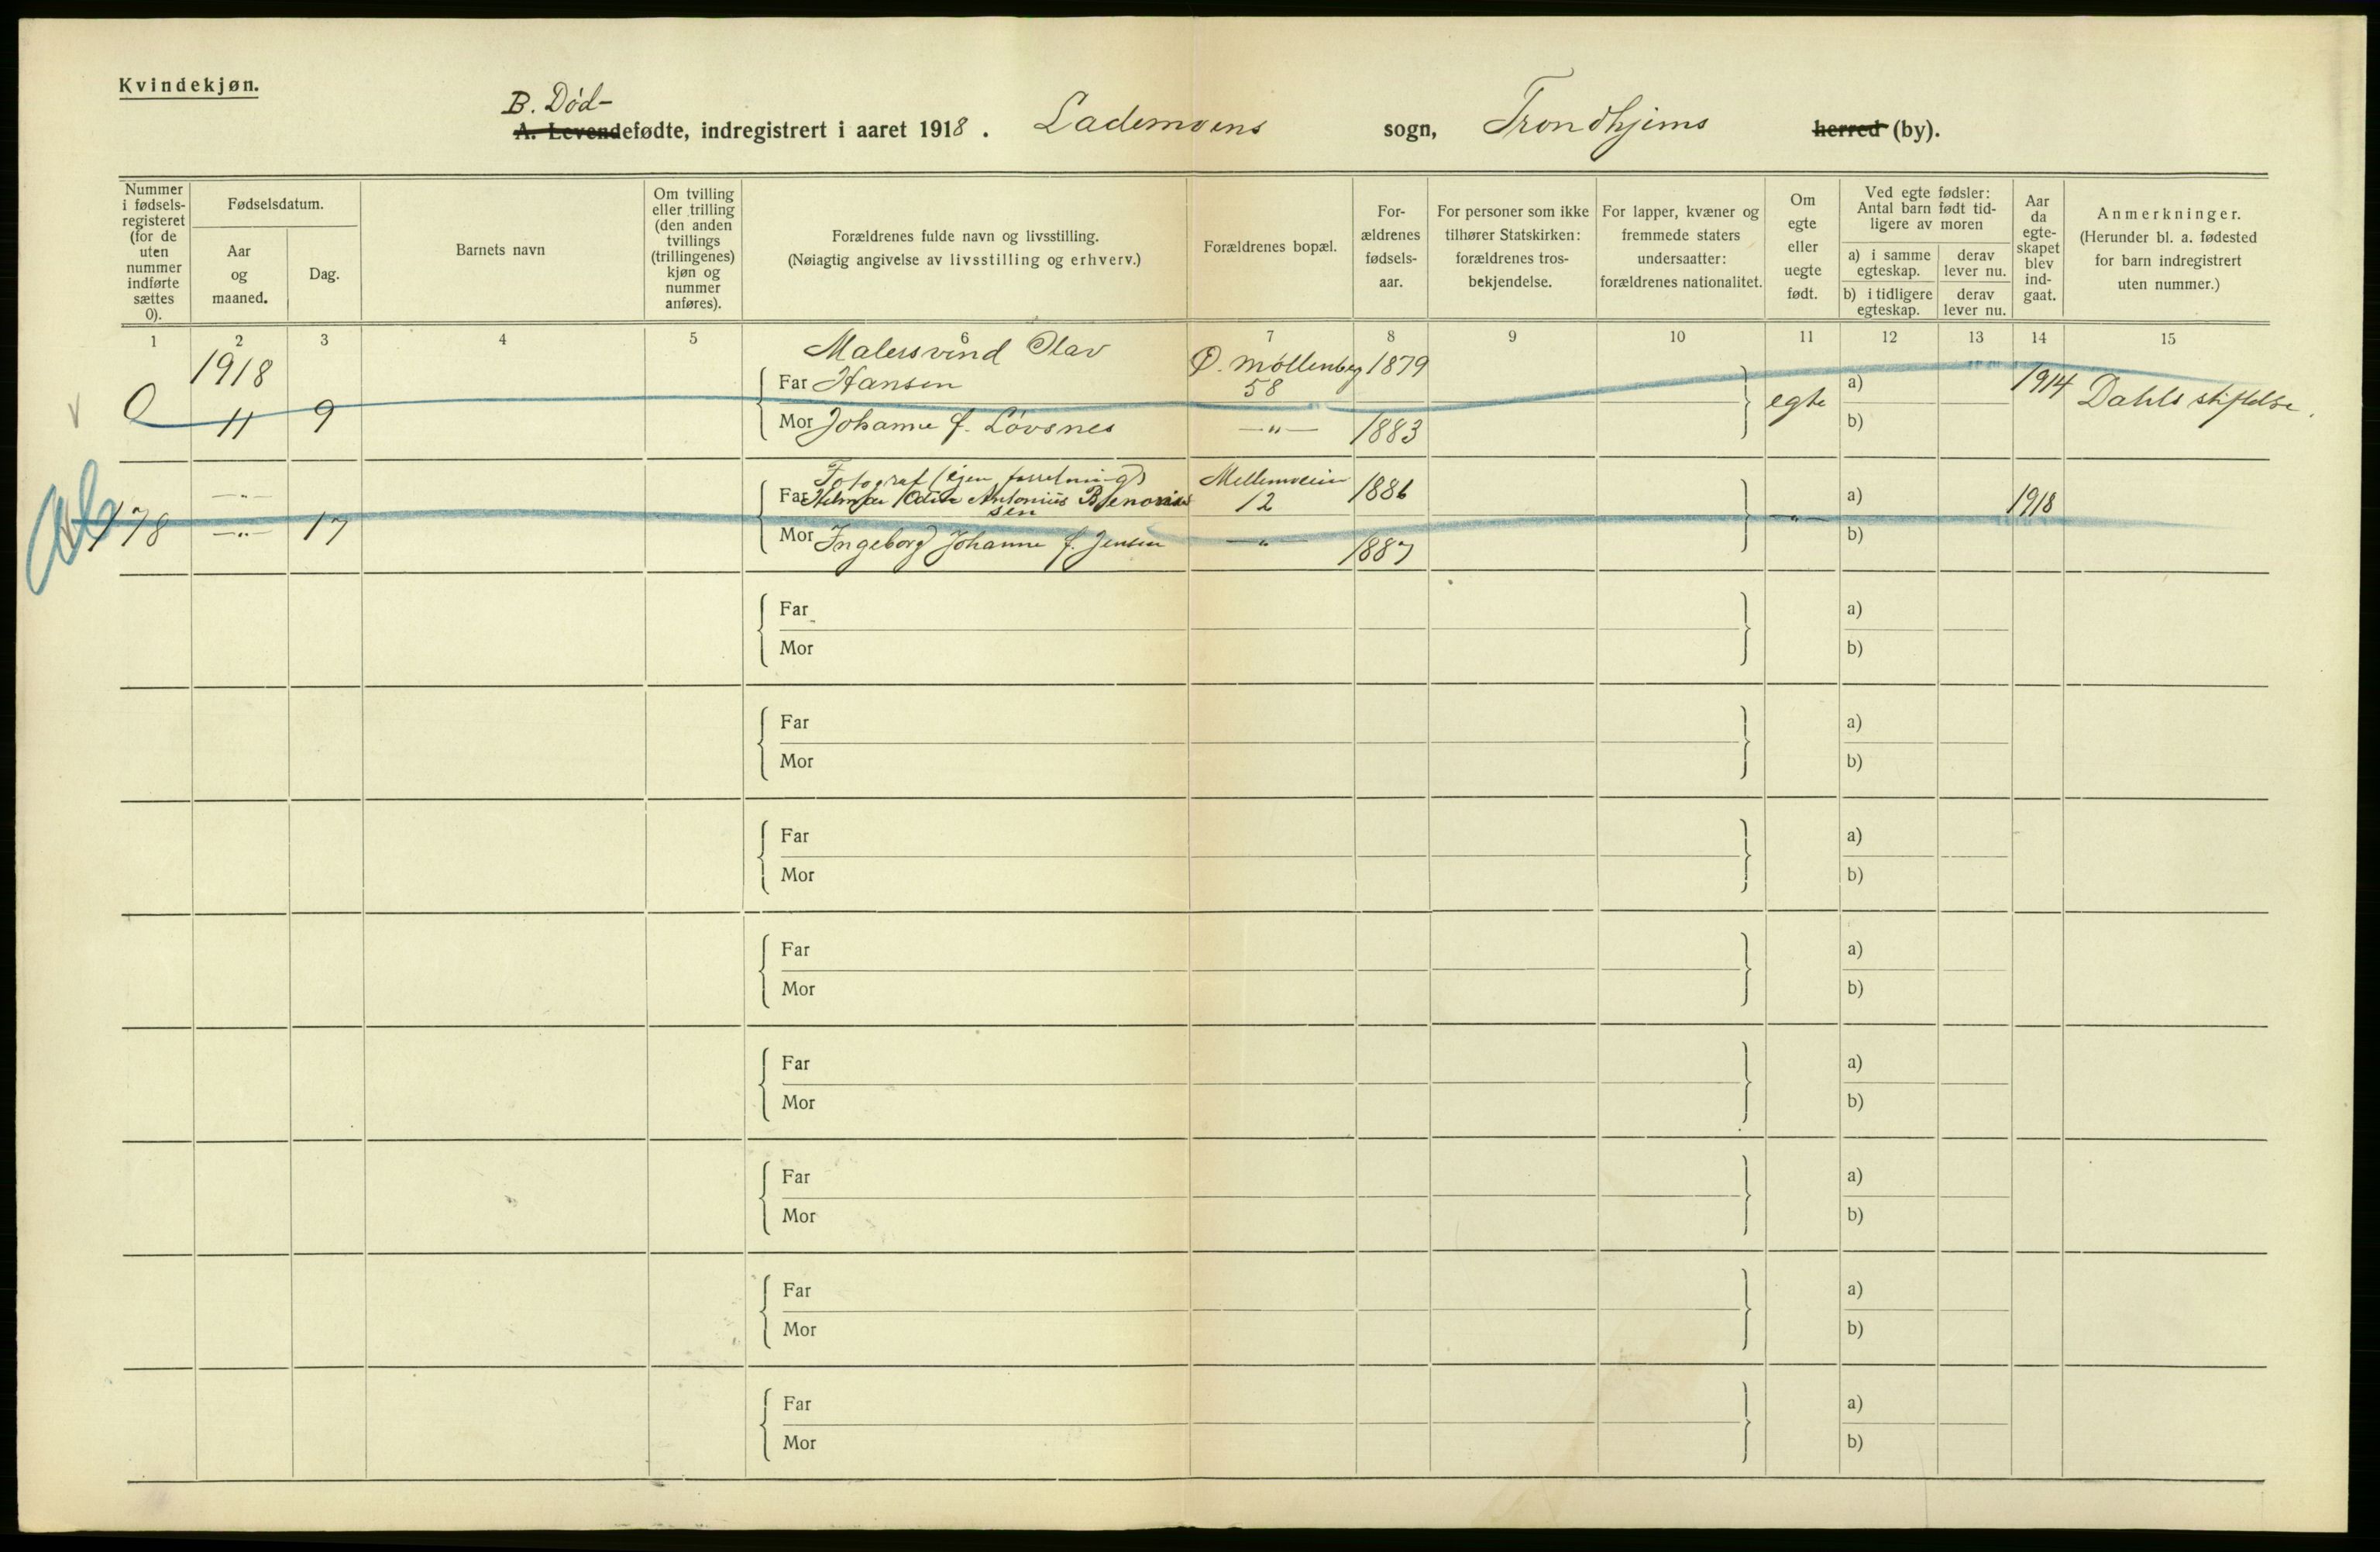 Kvindekjøn.
B. Død-
A. Levendefødte, indregistrert i aaret 1918. Lademoens sogn, Trondhjems herred (by).
Nummer i fødselsregisteret (for de uten nummer indførte sættes 0).
Fødselsdatum.
Aar og maaned.
Dag.
Barnets navn
Om tvilling eller trilling (den anden tvillings (trillingenes) kjøn og nummer anføres).
Forældrenes fulde navn og livsstilling.
(Nøiagtig angivelse av livsstilling og erhverv.)
Forældrenes bopæl.
Forældrenes fødselsaar.
For personer som ikke tilhører Statskirken: forældrenes trosbekjendelse.
For lapper, kvæner og fremmede staters undersaatter: forældrenes nationalitet.
Om egte eller uegte født.
Ved egte fødsler: Antal barn født tidligere av moren
a) i samme egteskap.
derav lever nu.
b) i tidligere egteskap.
derav lever nu.
Aar da egteskapet blev indgaat.
Anmerkninger.
(Herunder bl. a. fødested for barn indregistrert uten nummer.)
1 2 3 4 5 6 7 8 9 10 11 12 13 14 15
1918 Malersvend Olav Ø. Møllenberg 1879
Far Hansen 58 a) 1914 Dahls stiftelse.
0 11 9 egte
Mor Johanne f. Løvsnes —"— 1883 b)
—"— Fotograf (egen forretning) Mellemveien 1886
Far Antonius 12 a) 1918
sen
178 —"— 17 "
Mor Ingeborg Johanne f. Jensen —"— 1887 b)
Far a)
Mor b)
Far a)
Mor b)
Far a)
Mor b)
Far a)
Mor b)
Far a)
Mor b)
Far a)
Mor b)
Far a)
Mor b)
Far a)
Mor b)